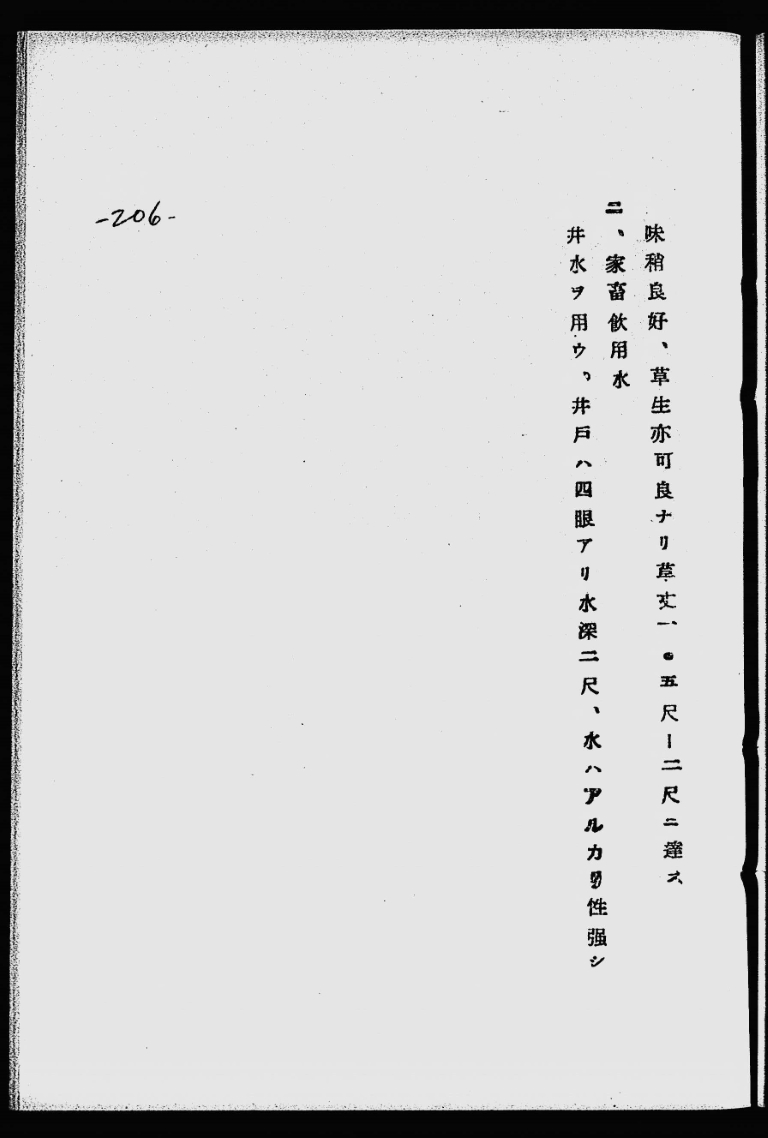 味稍良好、草生亦可良ナリ草丈一・五尺ー二尺ニ達ス
二、家畜飲用水
井水ヲ用ウ、井戸ハ四眼アリ水深二尺、水ハアルカリ性强シ
-206-